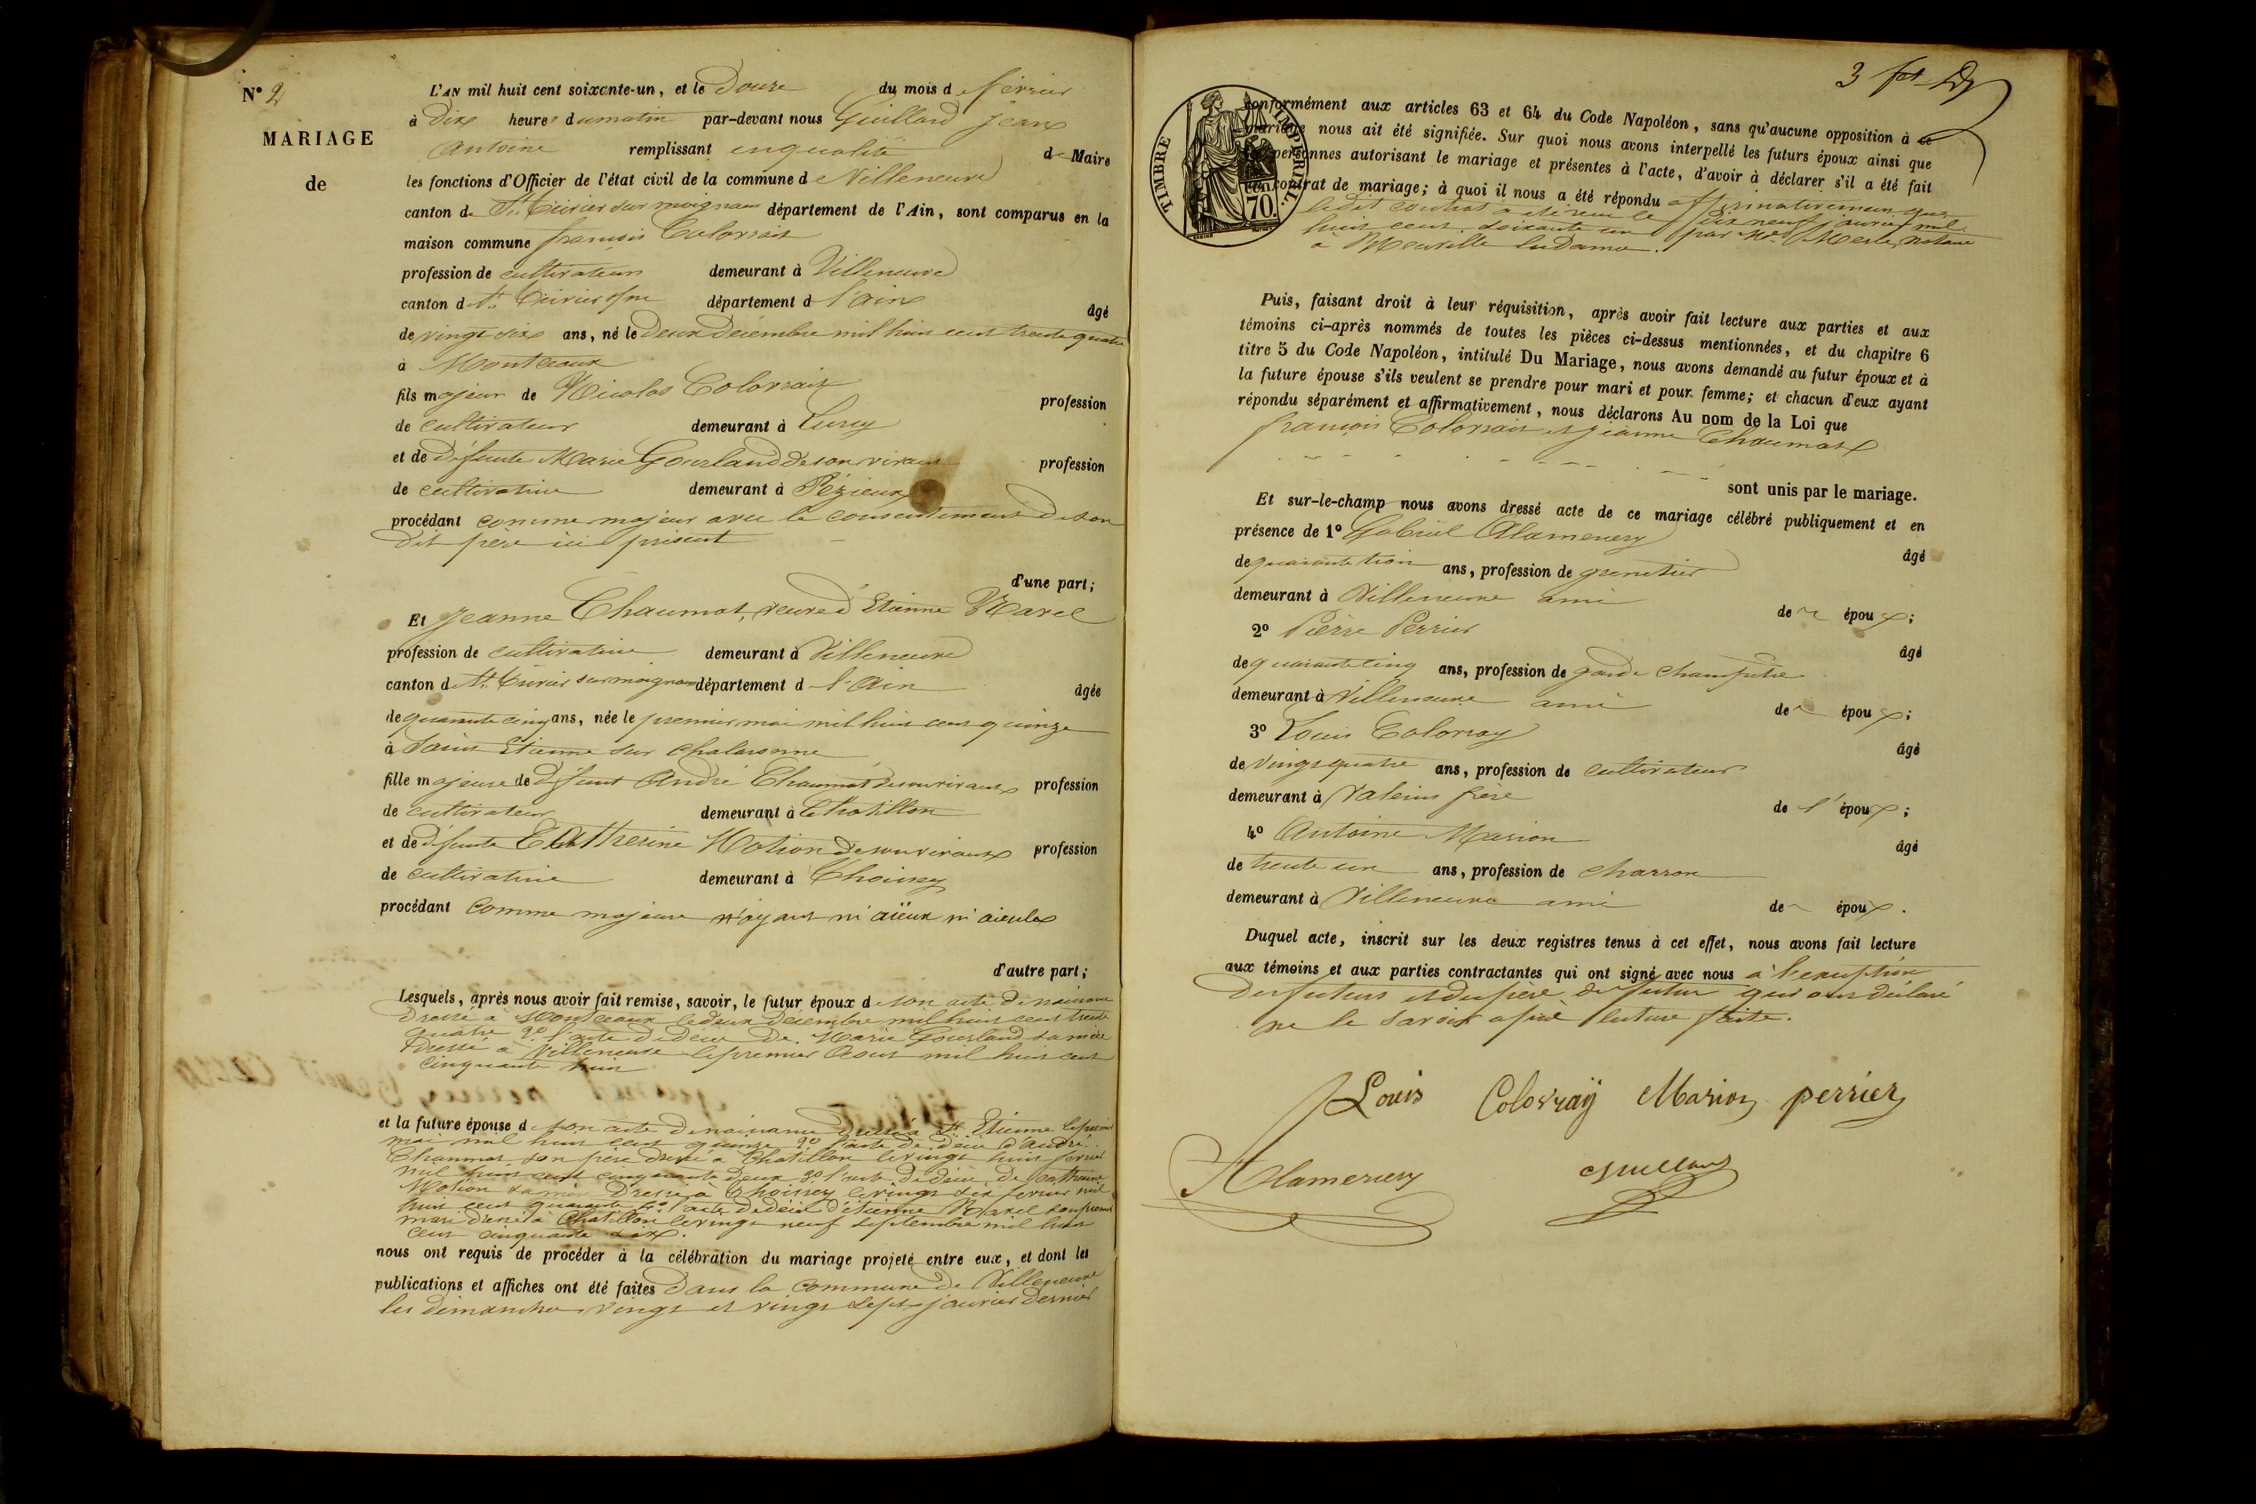 N° 2
MARIAGE
de
L'AN mil huit cent soixante-un, et le Douze du mois de février
à Dix heures du matin par-devant nous Guillard Jean
Antoine remplissant en qualité de Maire
les fonctions d'Officier de l'état civil de la commune de Villeneuve
canton de St Trivier sur moignans département de l'Ain, sont comparus en la
maison commune françois Colovrait
profession de cultivateur demeurant à Villeneuve
canton de St Trivier département de l'ain âgé
de vingt six ans, né le Deux Décembre mil huit cent trente quatre
à Montceaux
fils majeur de Nicolas Colovrait profession
de cultivateur demeurant à Lurcy
et de Défunte Marie Gourland de son vivant profession
de cultivatrice demeurant à Pézieux
procédant comme majeur avec le consentement de son
dit père ici présent
d'une part;
Et Jeanne Chaumat, veuve d'Etienne Ravel
profession de cultivatrice demeurant à Villeneuve
canton de St Trivier sur moignans département de l'Ain âgée
de quarante cinq ans, née le premier mai mil huit cent quinze
à Saint Etienne sur chalaronne
fille majeure de Défunt André Chaumat de son vivant profession
de cultivateur demeurant à Chatillon
et de défunte Catherine Motion de son vivant profession
de cultivatrice demeurant à Thoissey
procédant comme majeure n'ayant ni aïeux ni aieules
d'autre part;
Lesquels, après nous avoir fait remise, savoir, le futur époux de son acte de naissance
Dressé à Montceaux le deux décembre mil huit cent trente
quatre 2° l'acte de décès de Marie Gourland sa mère
dressé à Villeneuve le premier Aout mil huit cent
cinquante huit
et la future épouse de son acte de naissance dressé à St Etienne le premier
mai mil huit cent quinze 2° l'acte de décès d'André
Chaumat son père dressé à Chatillon le vingt huit février
mil huit cent cinquante deux 3° l'acte de décès de Catherine
Motion sa mère Dressé à Thoissey le vingt six février mil
huit cent quarante 4° l'acte de décès d'étienne Ravel son premier
mari dressé à Chatillon le vingt neuf septembre mil huit
cent cinquante six.
nous ont requis de procéder à la célébration du mariage projeté entre eux, et dont les
publications et affiches ont été faites dans la commune de Villeneuve
les dimanches vingt et vingt sept janvier dernier
3
TIMBRE IMPÉRIAL
70
conformément aux articles 63 et 64 du Code Napoléon, sans qu'aucune opposition à ce
mariage nous ait été signifiée. Sur quoi nous avons interpellé les futurs époux ainsi que
les personnes autorisant le mariage et présentes à l'acte, d'avoir à déclarer s'il a été fait
un contrat de mariage; à quoi il nous a été répondu affirmativement que
ledit contrat a été reçu le dix neuf janvier mil
huit cent soixante un par Me Merle, notaire
à
Puis, faisant droit à leur réquisition, après avoir fait lecture aux parties et aux
témoins ci-après nommés de toutes les pièces ci-dessus mentionnées, et du chapitre 6
titre 5 du Code Napoléon, intitulé Du Mariage, nous avons demandé au futur époux et à
la future épouse s'ils veulent se prendre pour mari et pour femme; et chacun d'eux ayant
répondu séparément et affirmativement, nous déclarons Au nom de la Loi que
françois Colovrait et jeanne Chaumat
sont unis par le mariage.
Et sur-le-champ nous avons dressé acte de ce mariage célébré publiquement et en
présence de 1° Gabriel Alamercery âgé
de quarante trois ans, profession de grenetier
demeurant à Villeneuve ami des époux;
2° Pierre Perrier âgé
de quarante cinq ans, profession de garde champêtre
demeurant à Villeneuve ami des époux;
3° Louis Colovray âgé
de vingt quatre ans, profession de cultivateur
demeurant à Valeins frère de l'époux;
4° Antoine Marion âgé
de trente un ans, profession de charron
demeurant à Villeneuve ami des époux.
Duquel acte, inscrit sur les deux registres tenus à cet effet, nous avons fait lecture
aux témoins et aux parties contractantes qui ont signé avec nous à l'exception
des futurs et du père du futur qui ont déclaré
ne le savoir après lecture faite.
Louis Colovray Marion perrier
Alamercery Guillard